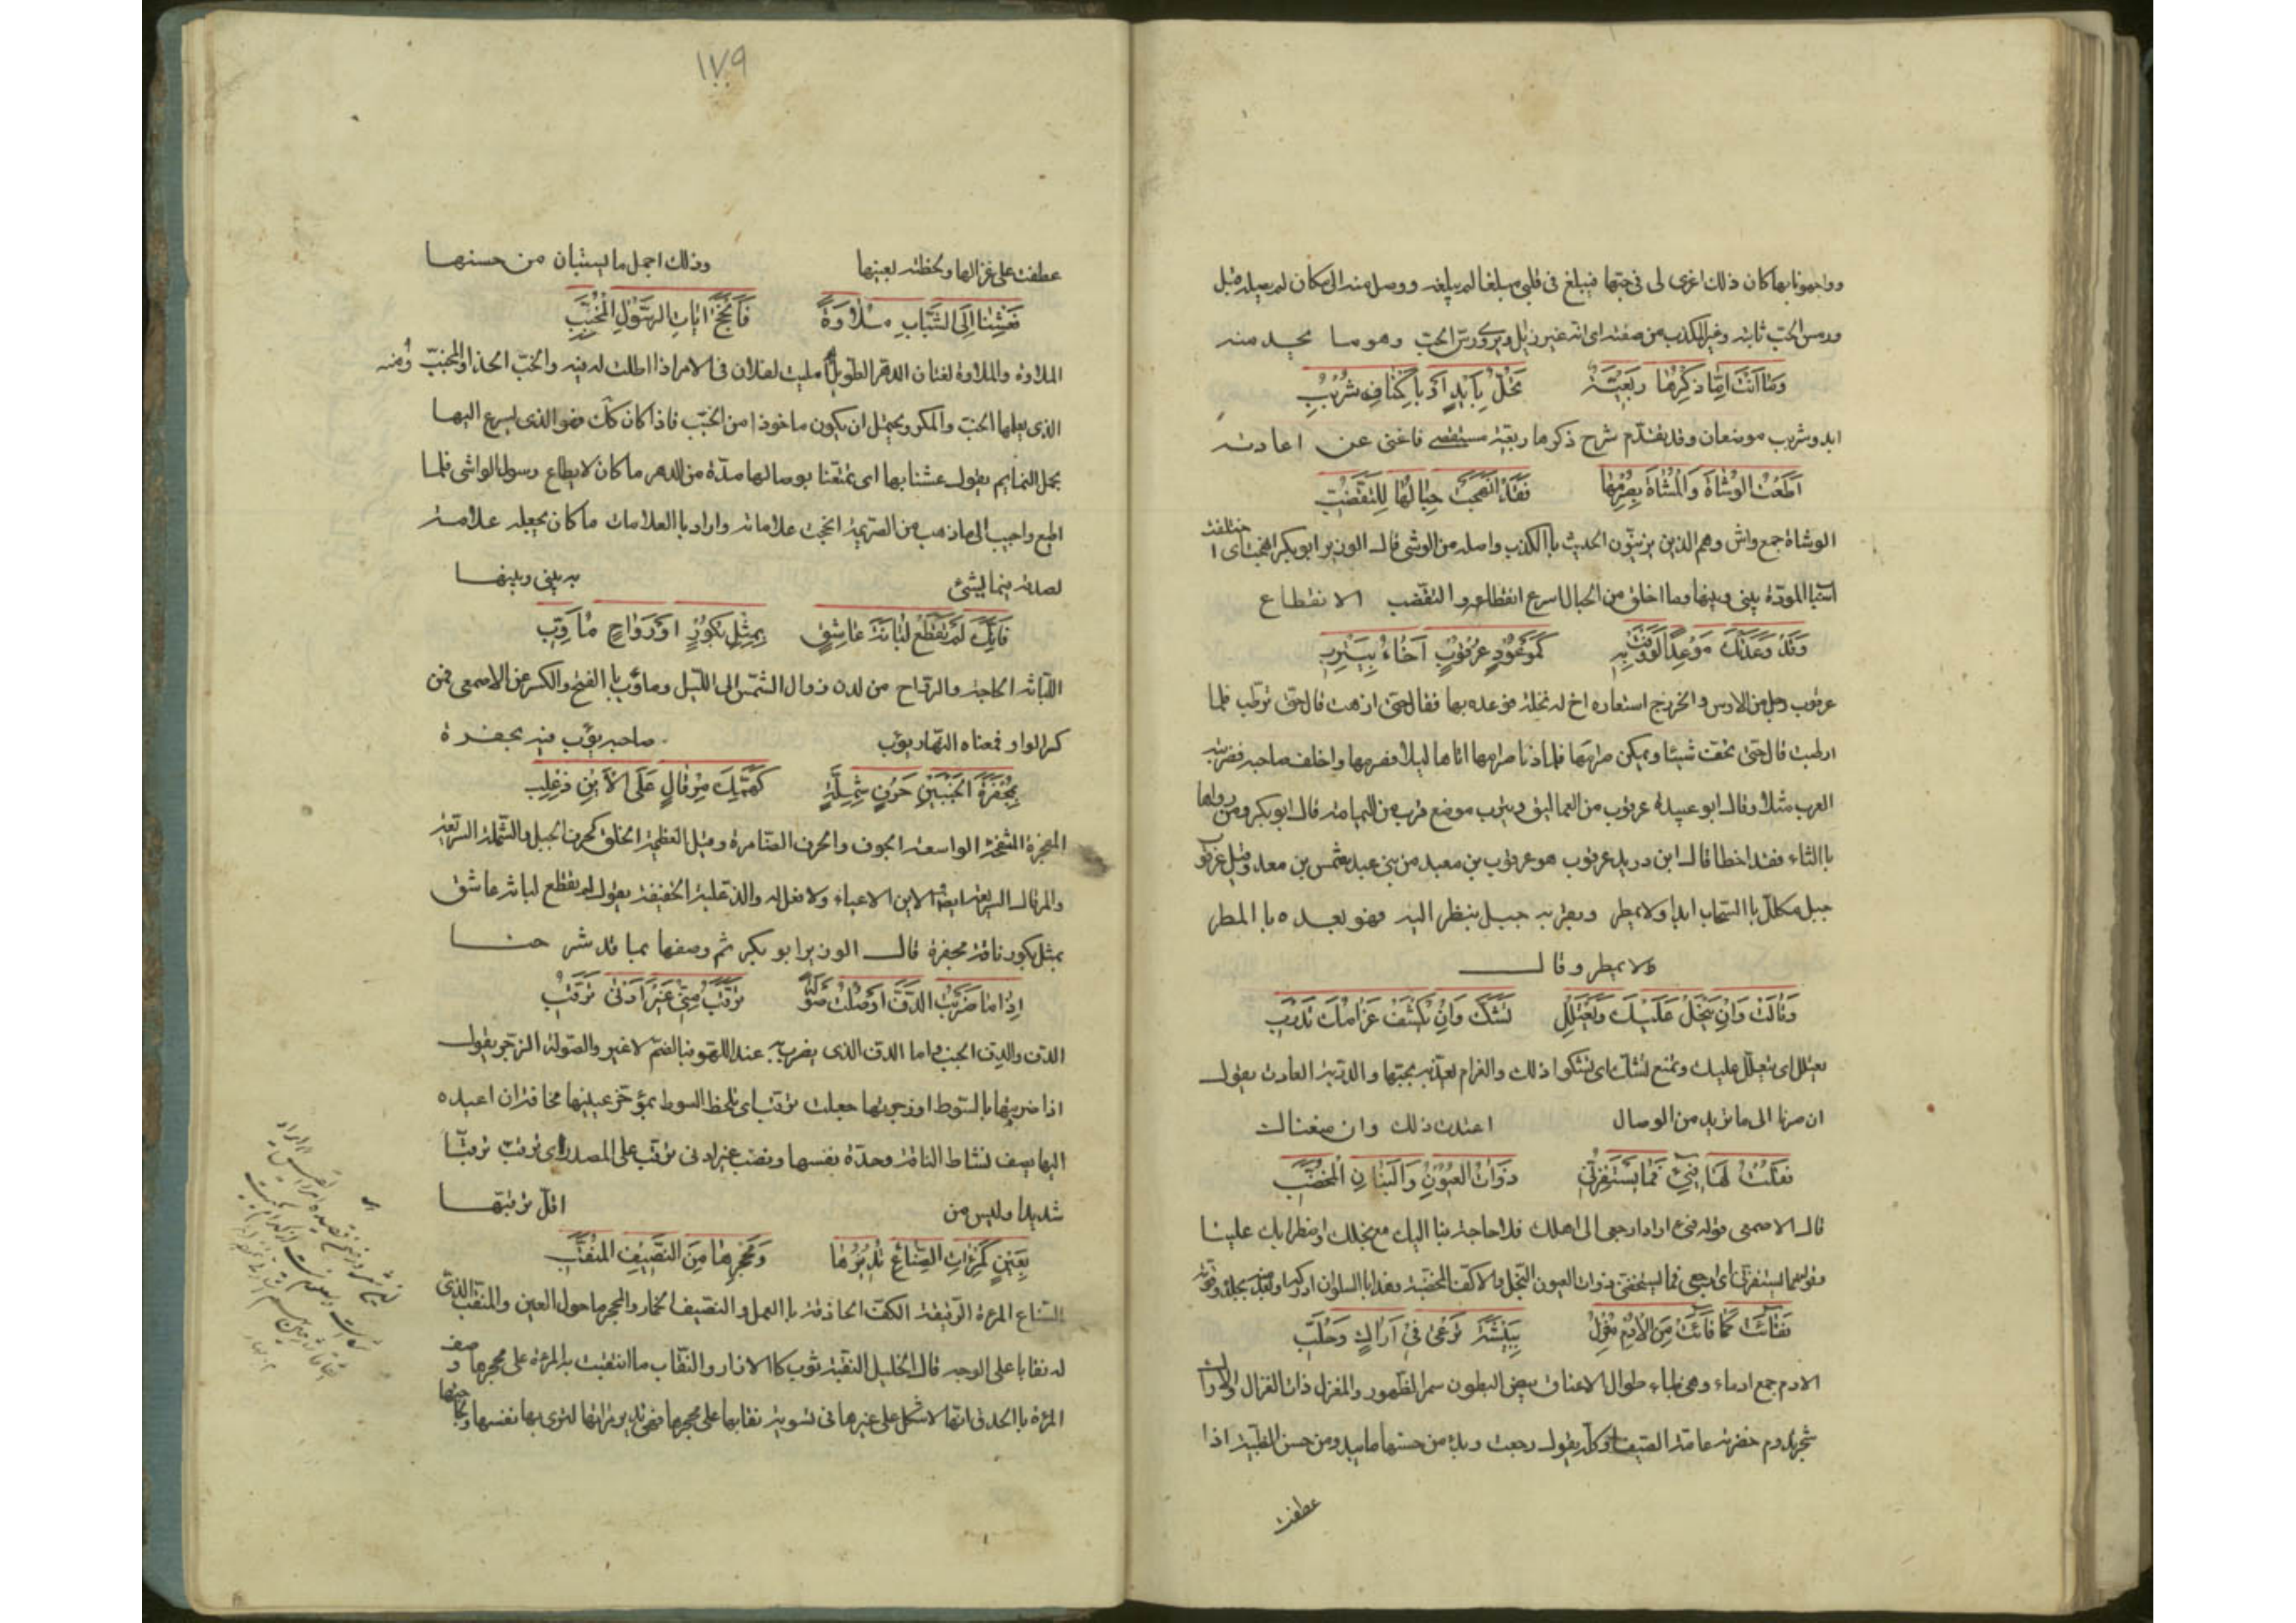 وواجهونا بها كان ذلك اغرى لى فى حبها فيبلغ فى قلبى مبلغا لم يبلغه ووصل منه الى مكان لم يصله قبل
ورس الحب ثابته وغير الكذب من صفته اى انه غير زيل ويروى رس الحب وهو ما يجد منه
وَمَا اَنْتَ اَمْ مَا ذِكْرُهَا رَبَعِيَّةً تَحُلُّ بِاَيْدٍ اَوْ بِاَكْنَافِ شُرْبُبِ
ايد وشربب موضعان وقد يقدم شرح ذكرها ربعية مستقصى فاغنى عن اعادته
اَطَعْتَ الْوُشَاةَ وَالْمُشَاةَ بِصَرْمِهَا فَقَدْ اَنْهَجَتْ حِبَالُهَا لِلتَّقَضُّبِ
الوشاة جمع واش وهم الذين يزينون الحديث باالكذب واصله من الوشى قال الوزير ابو بكر انهجت اى اختلفت
اسباب المودة بينى وبينها وما اخلق من الحبال اسرع انقطاعه والتقضب الانقطاع
وَقَدْ وَعَدَتْكَ مَوْعِدًا لَوْ وَفَتْ بِهِ كَمَوْعُودِ عُرْقُوبٍ اَخَاهُ بِيَتْرَبِ
عرقوب رجل من الاوس والخزرج استعاره اخ له نخلة فوعده بها فقال حتى ازهت قال حتى ترطب فلما
ارطبت قال حتى تجف شيئا ويمكن صرمها فلما دنا صرامها اتاها ليلا فصرمها واخلف صاحبه فضربته
العرب مثلا وقال ابو عبيدة عرقوب من العماليق ويترب موضع قرب من اليمامة قال ابو بكر ومن رواها
باالثاء فقد اخطا قال ابن دريد عرقوب هو عرقوب بن معبد من بنى عبد شمس بن معد وقيل عرقوب
جبل مكلل باالسحاب ابدا ولا يمطر ويعتر به جبيل ينظر اليه فهو يعده باالمطر
ولا يمطر وقال
وَقَالَتْ وَاِنْ يُبْخَلْ عَلَيْكَ وَيُعْتَلَلْ تَشَكَّ وَاِنْ يُكْشَفْ غَرَامُكَ تَدْرَبِ
يعتلل اى يتعلل عليك وتمنع تشك اى تشكوا ذلك والغرام تعذبه بحبها والدربة العادة يقول
ان صرنا الى ما تريد من الوصال اعتدت ذلك وان منعناك
فَقُلْتُ لَهَا فِيئِى فَمَا يَسْتَفِزُّنِى ذَوَاتُ الْعُيُونِ وَالْبَنَانِ الْمُخَضَّبِ
قال الاصمعى قوله فيئى اراد ارجعى الى اهلك فلا حاجة بنا اليك مع بخلك
فَفَاءَتْ كَمَا فَاءَتْ مِنَ الْاُدْمِ مُغْزِلٌ بِبِيشَةَ تَرْعَى فِى اَرَاكٍ وَحُلَّبِ
الادم جمع ادماء وهى ظباء طوال الاعناق بيض البطون سمر الظهور والمغزل ذات الغزال والاراك
شجر يدوم خضرته عامة الصيف وكله يقول رجعت وبدا من حسنها ما يبدو من حسن الظبية اذا
عطفت
١٧٩
عطفت على غزالها ولحظته بعينها وذلك اجمل ما يستبان من حسنها
فَعِشْنَا اِلَى الشَّبَابِ مُلَاوَةً فَاَنْجَحَ اٰيَاتِ الرَّسُولِ الْمُخَبِّبِ
الملاوة والملاوة لغتان الدهر الطويل مليت لفلان فى الامر اذا اطلت له فيه والخب الحذا والمخبب ومنه
الذى يعلمها الخب والمكر ويحتمل ان يكون ماخوذا من الخبب فاذا كان كك فهو الذى يسرع اليها
بحمل النمايم يقول عشنا بها اى تمتعنا بوصالها مدة من الدهر ما كان لا يطاع رسول الواشى فلما
اطيع واجيب الى ما ذهب من الصريمة انجحت علاماته واراد باالعلامات ما كان يجعله علامة
لصدقه فيما يشئ به بينى وبينها
فَاِنَّكَ لَمْ تَقْطَعْ لُبَانَةَ عَاشِقٍ بِمِثْلِ بُكُورٍ اَوْ رَوَاحٍ مُأَوَّبِ
اللبانة الحاجة والرواح من لدن زوال الشمس الى الليل وماؤب باالفتح والكسر عن الاصمعى فمن
كسر الواو فمعناه النهار يؤب صاحبه يؤب فيه بجفرة
بِمُجْفَرَةِ الْجَنْبَيْنِ حَرْفٍ شِمِلَّةٍ كَهَمِّكَ مِرْقَالٍ عَلَى الْاَيْنِ ذِعْلِبِ
المجفرة المنتفخة الواسعة الجوف والحرف الضامرة وقيل العظيمة الخلق كحرف الجبل والشملة السريعة
والمرقال السريعة ايضا الاين الاعياء ولا فعل له والذعلبة الخفيفة يقول لم يقطع لبانة عاشق
بمثل بكور ناقة مجفرة قال الوزير ابو بكر ثم وصفها بما قد شر حنا
اِذَا مَا ضَرَبْتُ الدَّفَّ اَوْ صُلْتُ صَوْلَةً تَرَقَّبُ مِنِّى غَيْرَ اَدْنَى تَرَقُّبِ
الدف والدف الجنب واما الدف الذى يضرب به عند اللهو فباالضم لاغير والصولة الزجر يقول
اذا ضربتها باالسوط او زجرتها جعلت ترقب اى تلحظ السوط بمؤخر عينها مخافة ان اعيده
اليها يصف نشاط الناقة وحدة نفسها ونصب غير ادنى ترقب على المصدر اى ترقب ترقبا
شديدا وليس من اقل ترقبها
بِعَيْنٍ كَمِرْاٰتِ الصَّنَاعِ تُدِيرُهَا وَمَحْجِرِهَا مِنَ النَّصِيفِ الْمُنَقَّبِ
الصناع المرءة الرفيقة الكف الحاذقة باالعمل والنصيف الخمار والمحجر ما حول العين والمنقب الذى
له نقابا على الوجه قال الخليل النقبة ثوب كاالازار والنقاب ما انتقبت به المرءة على محجرها وصف
المرءة باالحدق انها لا تتكل على غيرها فى تسوية نقابها على محجرها فهى تدير مرآتها لترى بها نفسها